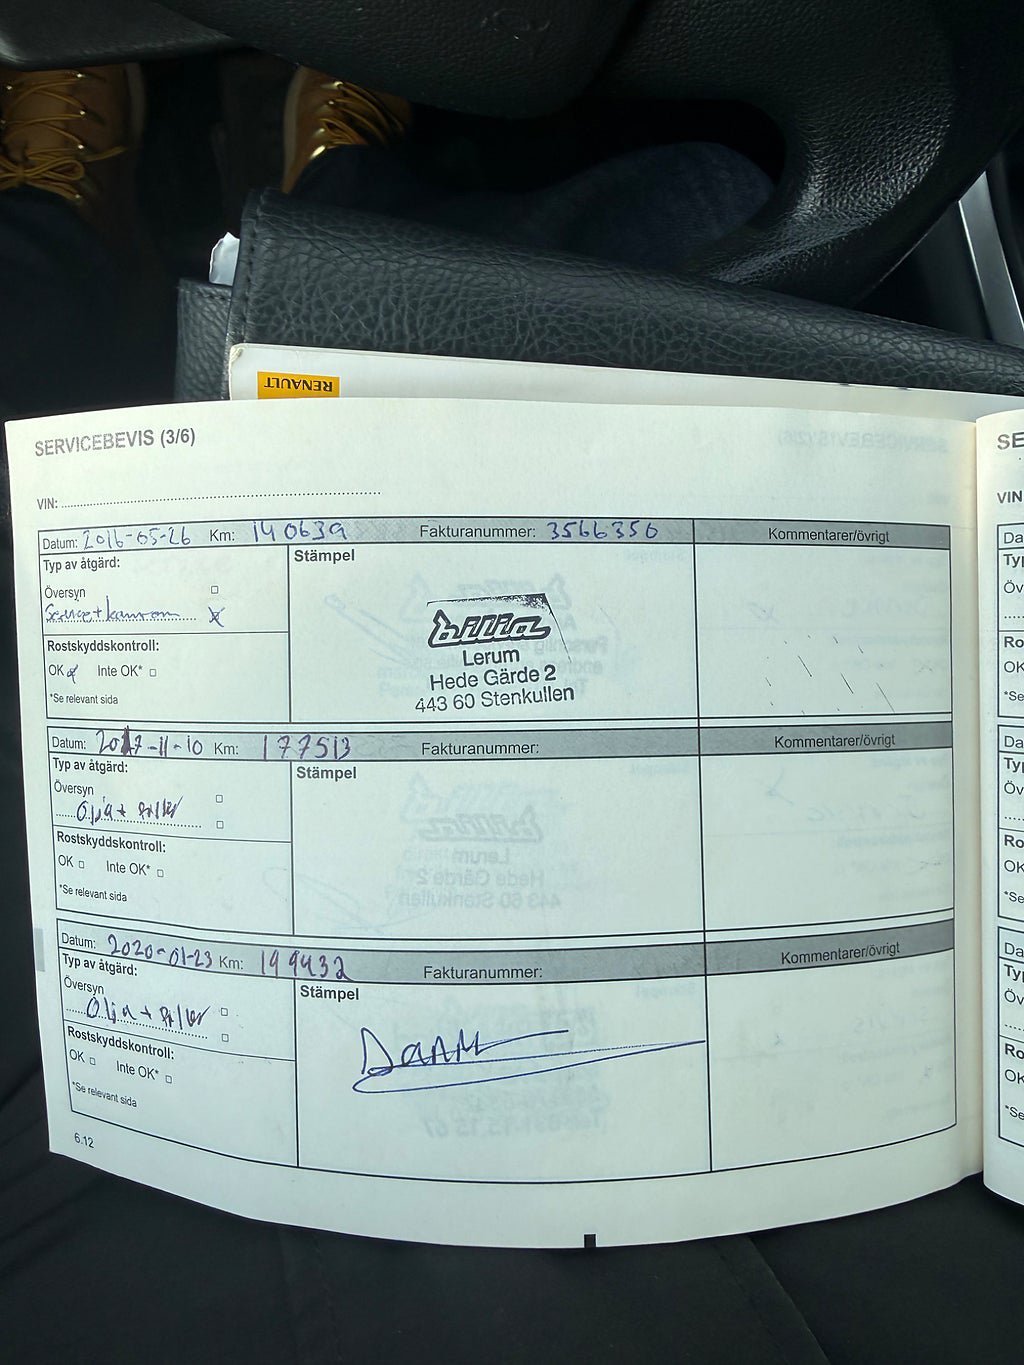 RENAULT
SERVICEBEVIS (3/6)
SE
VIN:
VIN
Datum: 2016-05-26 Km: 140639 Fakturanummer: 3566356 Kommentarer/övrigt
Typ av åtgärd:
Stämpel
Översyn
Service + kamrem
Rostskyddskontroll:
OK Inte OK*
*Se relevant sida
bilia
Lerum
Hede Gärde 2
443 60 Stenkullen
Datum: 2017-11-10 Km: 177513 Fakturanummer: Kommentarer/övrigt
Typ av åtgärd:
Stämpel
Översyn
Olja + filter
Rostskyddskontroll:
OK Inte OK*
*Se relevant sida
Datum: 2020-01-23 Km: 199432 Fakturanummer: Kommentarer/övrigt
Typ av åtgärd:
Stämpel
Översyn
Olja + filter
Rostskyddskontroll:
OK Inte OK*
*Se relevant sida
6.12
Da
Typ
Öv
Ro
OK
*Se
Da
Typ
Öv
Ro
OK
*Se
Da
Typ
Öv
Ro
OK
*Se